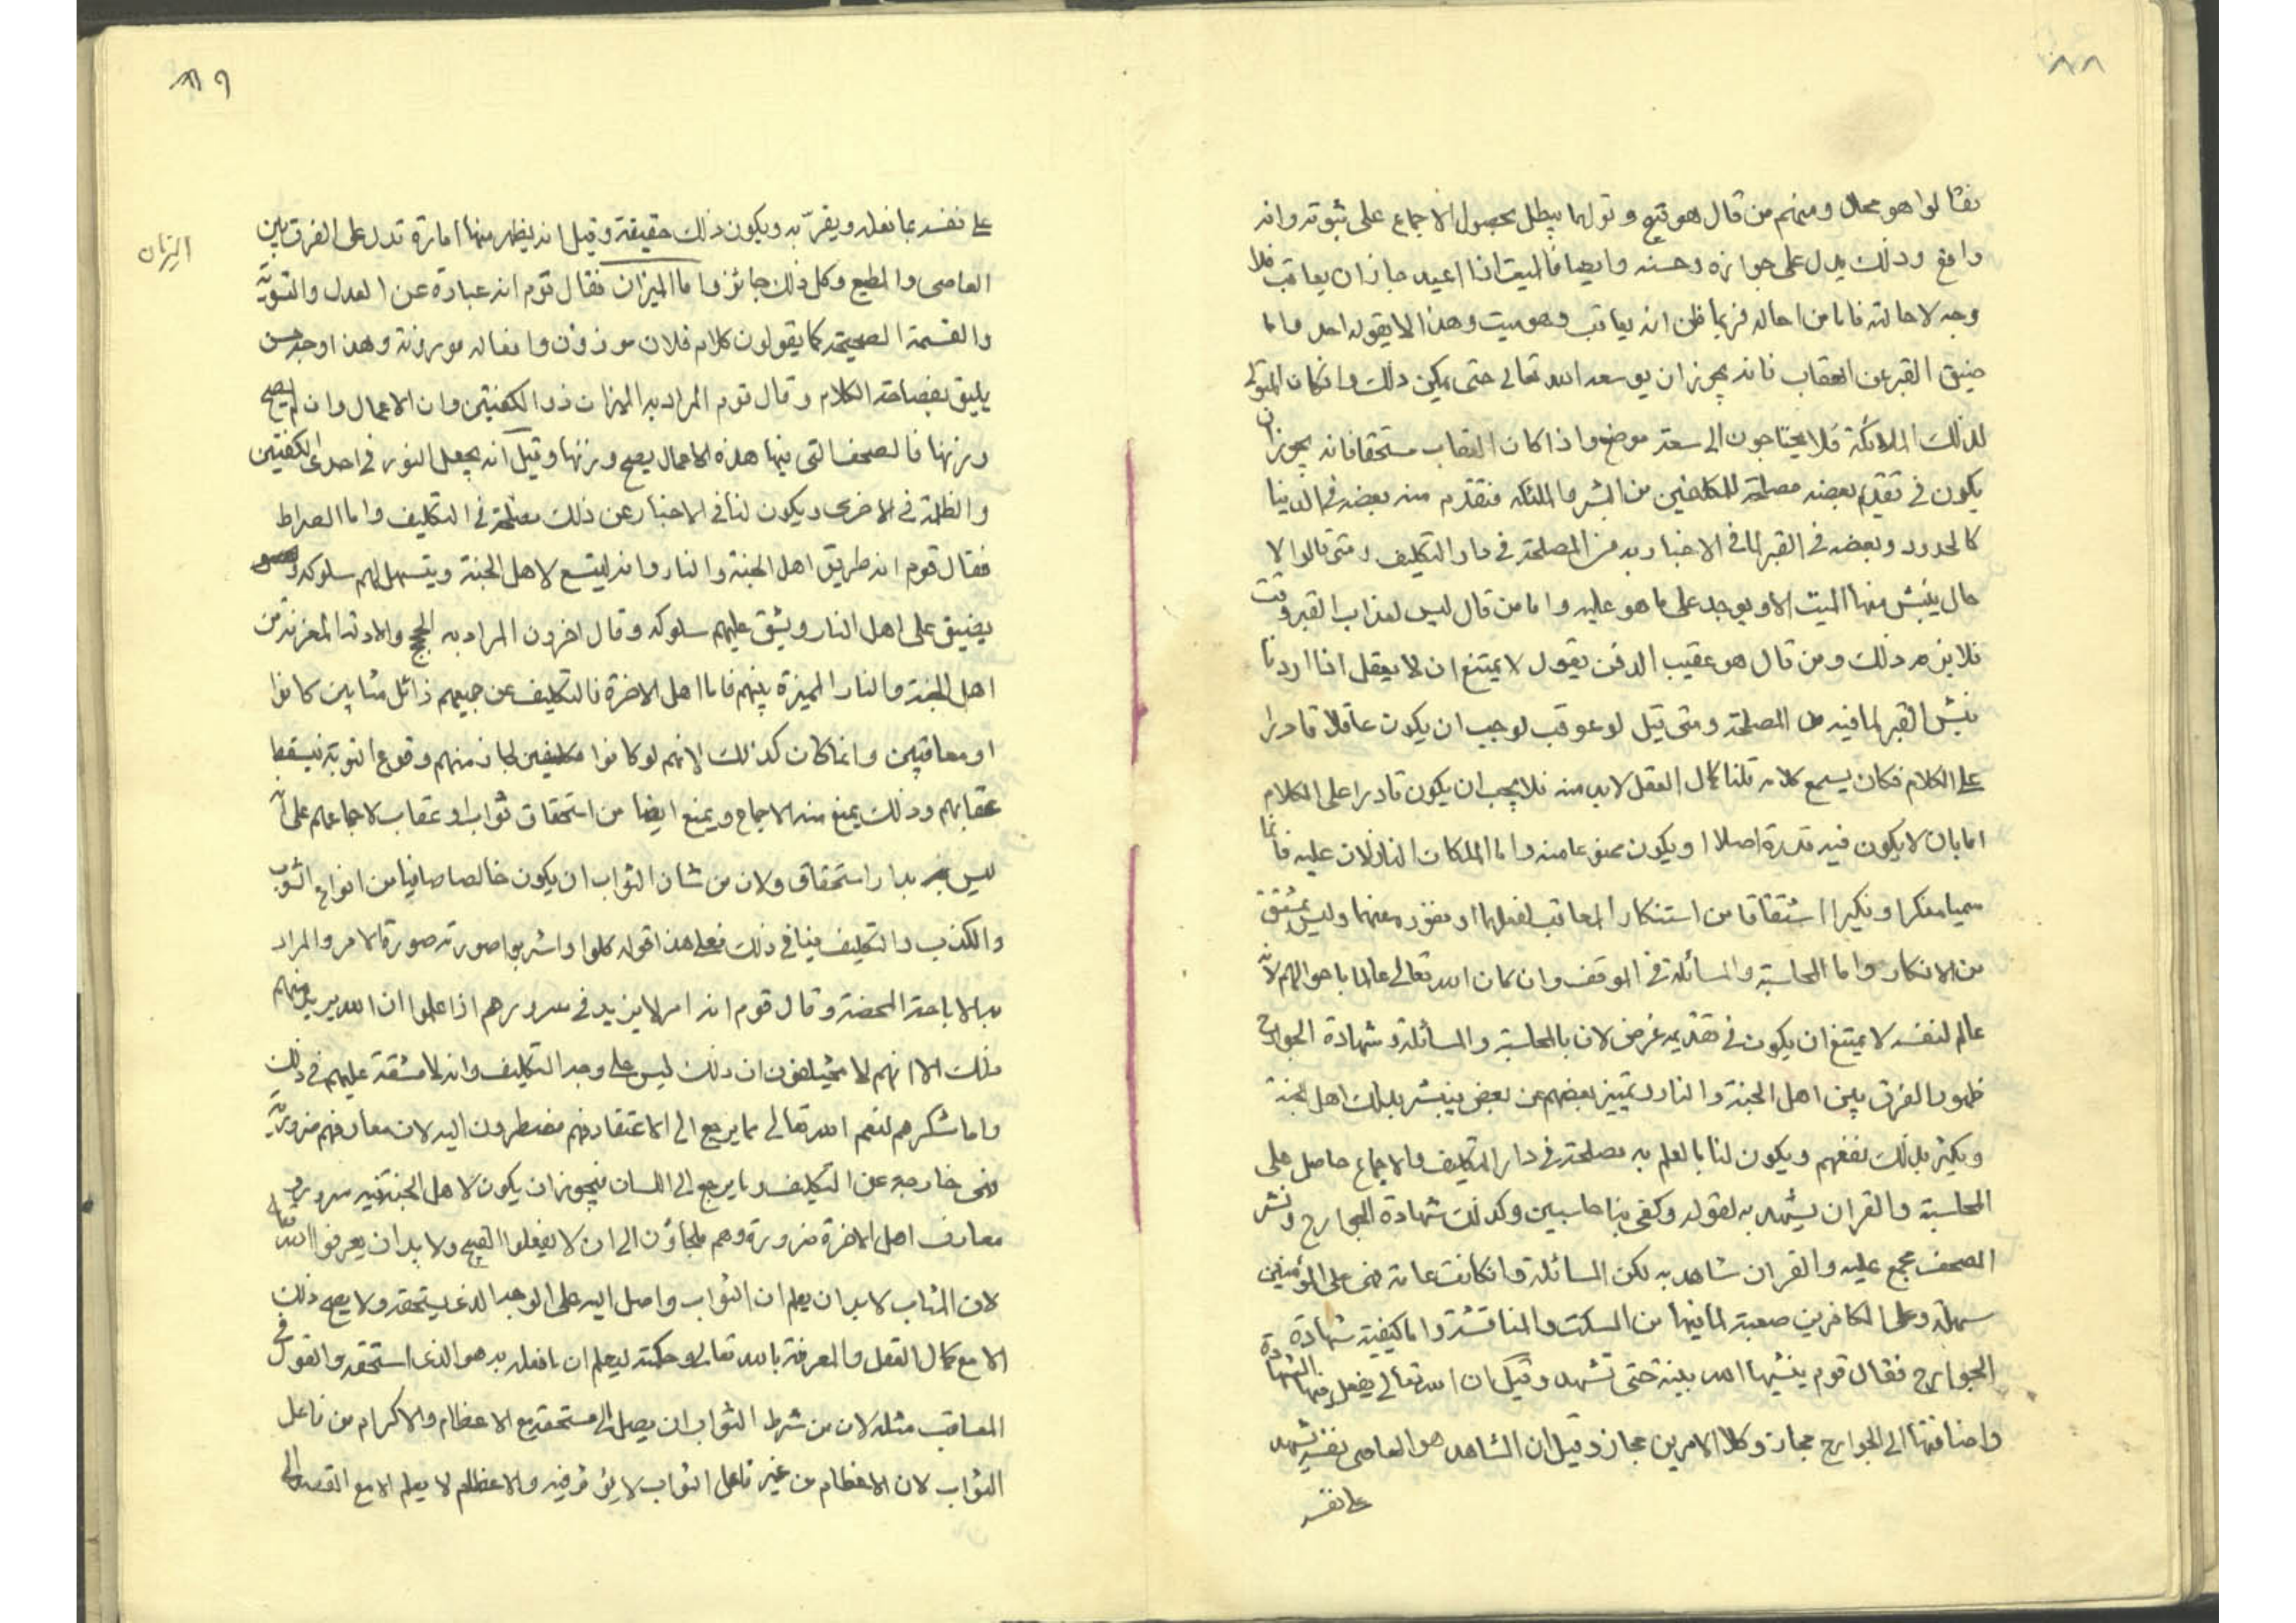 ٨٨
فقالوا هو محال ومنهم من قال هو قبيح وقولهما يبطل بحصول الاجماع على ثبوته وانه
واقع وذلك يدل على جوازه وحسنه وايضا فالميت اذا اعيد جاز ان يعاقب فلا
وجه لاحالته فاما من احاله فربما ظن انه يعاقب وهو ميت وهذا لا يقوله احد واما
ضيق القبر عن العقاب فانه يجوز ان يوسعه الله تعالى حتى يمكن ذلك وان كان المتولى
لذلك الملائكة فلا يحتاجون الى سعة موضع واذا كان العقاب مستحقا فانه يجوز ان
يكون في تقديم بعضه مصلحة للمكلفين من البشر والملئكة فتقدم منه بعضه في الدنيا
كالحدود وبعضه في القبر لما في الاخبار به من المصلحة في دار التكليف ومتى قالوا لا
حال ينبش منها الميت الا ويوجد على ما هو عليه واما من قال ليس لعذاب القبر وقت
فلا يلزمه ذلك ومن قال هو عقيب الدفن يقول لا يمتنع ان لا يعقل اذا اردنا
نبش القبر لما فيه من المصلحة ومتى قيل لو عوقب لوجب ان يكون عاقلا قادرا
على الكلام فكان يسمع كلامه قلنا كمال العقل لابد منه فلا يجب ان يكون قادرا على الكلام
اما بان لا يكون فيه قدرة اصلا او يكون ممنوعا منه واما الملكان النازلان عليه فانما
سميا منكرا ونكيرا اشتقاقا من استنكار المعاقب لفعلهما او نفوره عنهما وليس بمشتق
من الانكار واما المحاسبة والمسائلة في الموقف وان كان الله تعالى عالما باحوالهم لانه
عالم لنفسه لا يمتنع ان يكون في تقديمه غرض لان بالمحاسبة والمسائلة وشهادة الجوارح
ظهور الفرق بين اهل الجنة والنار وتمييز بعضهم من بعض فيبشر بذلك اهل الجنة
ويكثر بذلك نفعهم ويكون لنا بالعلم به مصلحة في دار التكليف والاجماع حاصل على
المحاسبة والقران يشهد به لقوله وكفى بنا حاسبين وكذلك شهادة الجوارح ونشر
الصحف مجمع عليه والقران شاهد به لكن المسائلة وان كانت عامة فهي على المؤمنين
سهلة وعلى الكافرين صعبة لما فيها من التبكيت والمناقشة واما كيفية شهادة
الجوارح فقال قوم يبنيها الله بنية حتى تشهد وقيل ان الله تعالى يفعل فيها الشهادة
واضافتها الى الجوارح مجاز وكلا الامرين مجاز وقيل ان الشاهد هو العاصى نفسه يشهد
على نفسه
٨٩
على نفسه بما فعله ويقرّ به ويكون ذلك حقيقة وقيل انه يظهر منها امارة تدل على الفرق بين
الميزان
العاصى والمطيع وكل ذلك جائز واما الميزان فقال قوم انه عبارة عن العدل والتسوية
والقسمة الصحيحة كما يقولون كلام فلان موزون وافعاله موزونة وهذا وجه حسن
يليق بفصاحة الكلام وقال قوم المراد به الميزان ذو الكفتين وان الاعمال وان لم يصح
وزنها فالصحف التي فيها هذه الاعمال يصح وزنها وقيل انه يجعل النور في احدى الكفتين
والظلمة في الاخرى ويكون لنا في الاخبار عن ذلك مصلحة في التكليف واما الصراط
فقال قوم انه طريق اهل الجنة والنار وانه يتسع لاهل الجنة ويتسهل لهم سلوكه
يضيق على اهل النار ويشق عليهم سلوكه وقال اخرون المراد به الحجج والادلة المفرقة بين
اهل الجنة والنار المميزة بينهم فاما اهل الاخرة فالتكليف عن جميعهم زائل مثابين كانوا
او معاقبين وانما كان كذلك لانهم لو كانوا مكلفين لجاز منهم وقوع التوبة فيسقط
عقابهم وذلك يمنع منه الاجماع ويمنع ايضا من استحقاق ثواب او عقاب لاجماعهم على انه
ليس بدار استحقاق ولان من شان الثواب ان يكون خالصا صافيا من انواع الشوب
والكدر والتكليف ينافى ذلك فعلى هذا قوله كلوا واشربوا صورته صورة الامر والمراد
به الاباحة المحضة وقال قوم انه امر لا يزيد في سرورهم اذا علموا ان الله يريد منهم
ذلك الا انهم لا يختلفون ان ذلك ليس على وجه التكليف وانه لا مشقة عليهم في ذلك
واما شكرهم لنعم الله تعالى مما يرجع الى الاعتقاد فهم مضطرون اليه لان معارفهم ضرورية
فهي خارجة عن التكليف وما يرجع الى اللسان فيجوز ان يكون لاهل الجنة فيه سرور و
معارف اهل الاخرة ضرورة وهم ملجاؤن الى ان لا يفعلوا القبيح ولا بد ان يعرفوا الله تعالى
لان المثاب لابد ان يعلم ان الثواب واصل اليه على الوجه الذي يستحقه ولا يصح ذلك
الا مع كمال العقل والمعرفة بالله تعالى وحكمته ليعلم ان ما فعله به هو الذي استحقه والقول في
المعاقب مثله لان من شرط الثواب ان يصل الى مستحقه مع الاعظام والاكرام من فاعل
الثواب لان الاعظام من غير فاعل الثواب لا يؤثر فيه والاعظام لا يعلم الا مع القصد الى